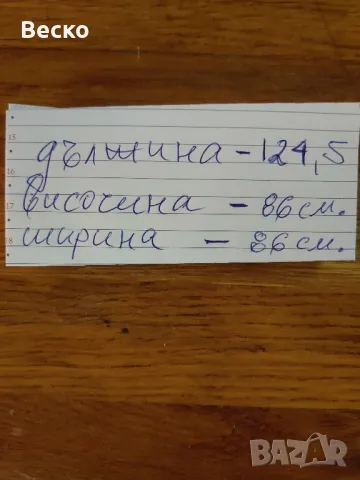 Веско
15
дължина - 124,5
16
височина - 86 см.
17
ширина - 86 см.
18
BAZAR